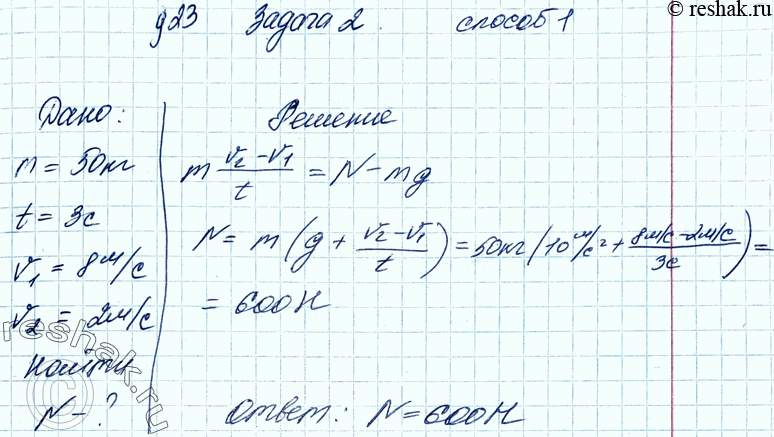 © reshak.ru
§23 Задача 2. способ 1
Дано:
m = 50кг
t = 3с
v₁ = 8м/с
v₂ = 2м/с
Найти
N - ?
Решение
m (v₂ - v₁)/t = N - mg
N = m (g + (v₂ - v₁)/t) = 50кг (10 м/с² + (8м/с - 2м/с)/3с) =
= 600Н
Ответ: N = 600Н
© reshak.ru